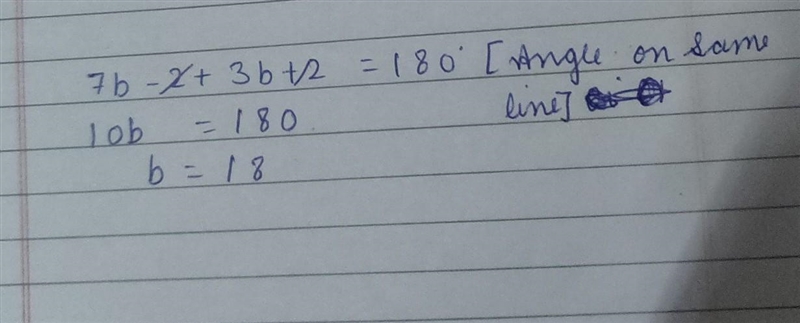 7b - 2 + 3b + 2 = 180° [Angle on same
line]
10b = 180
b = 18